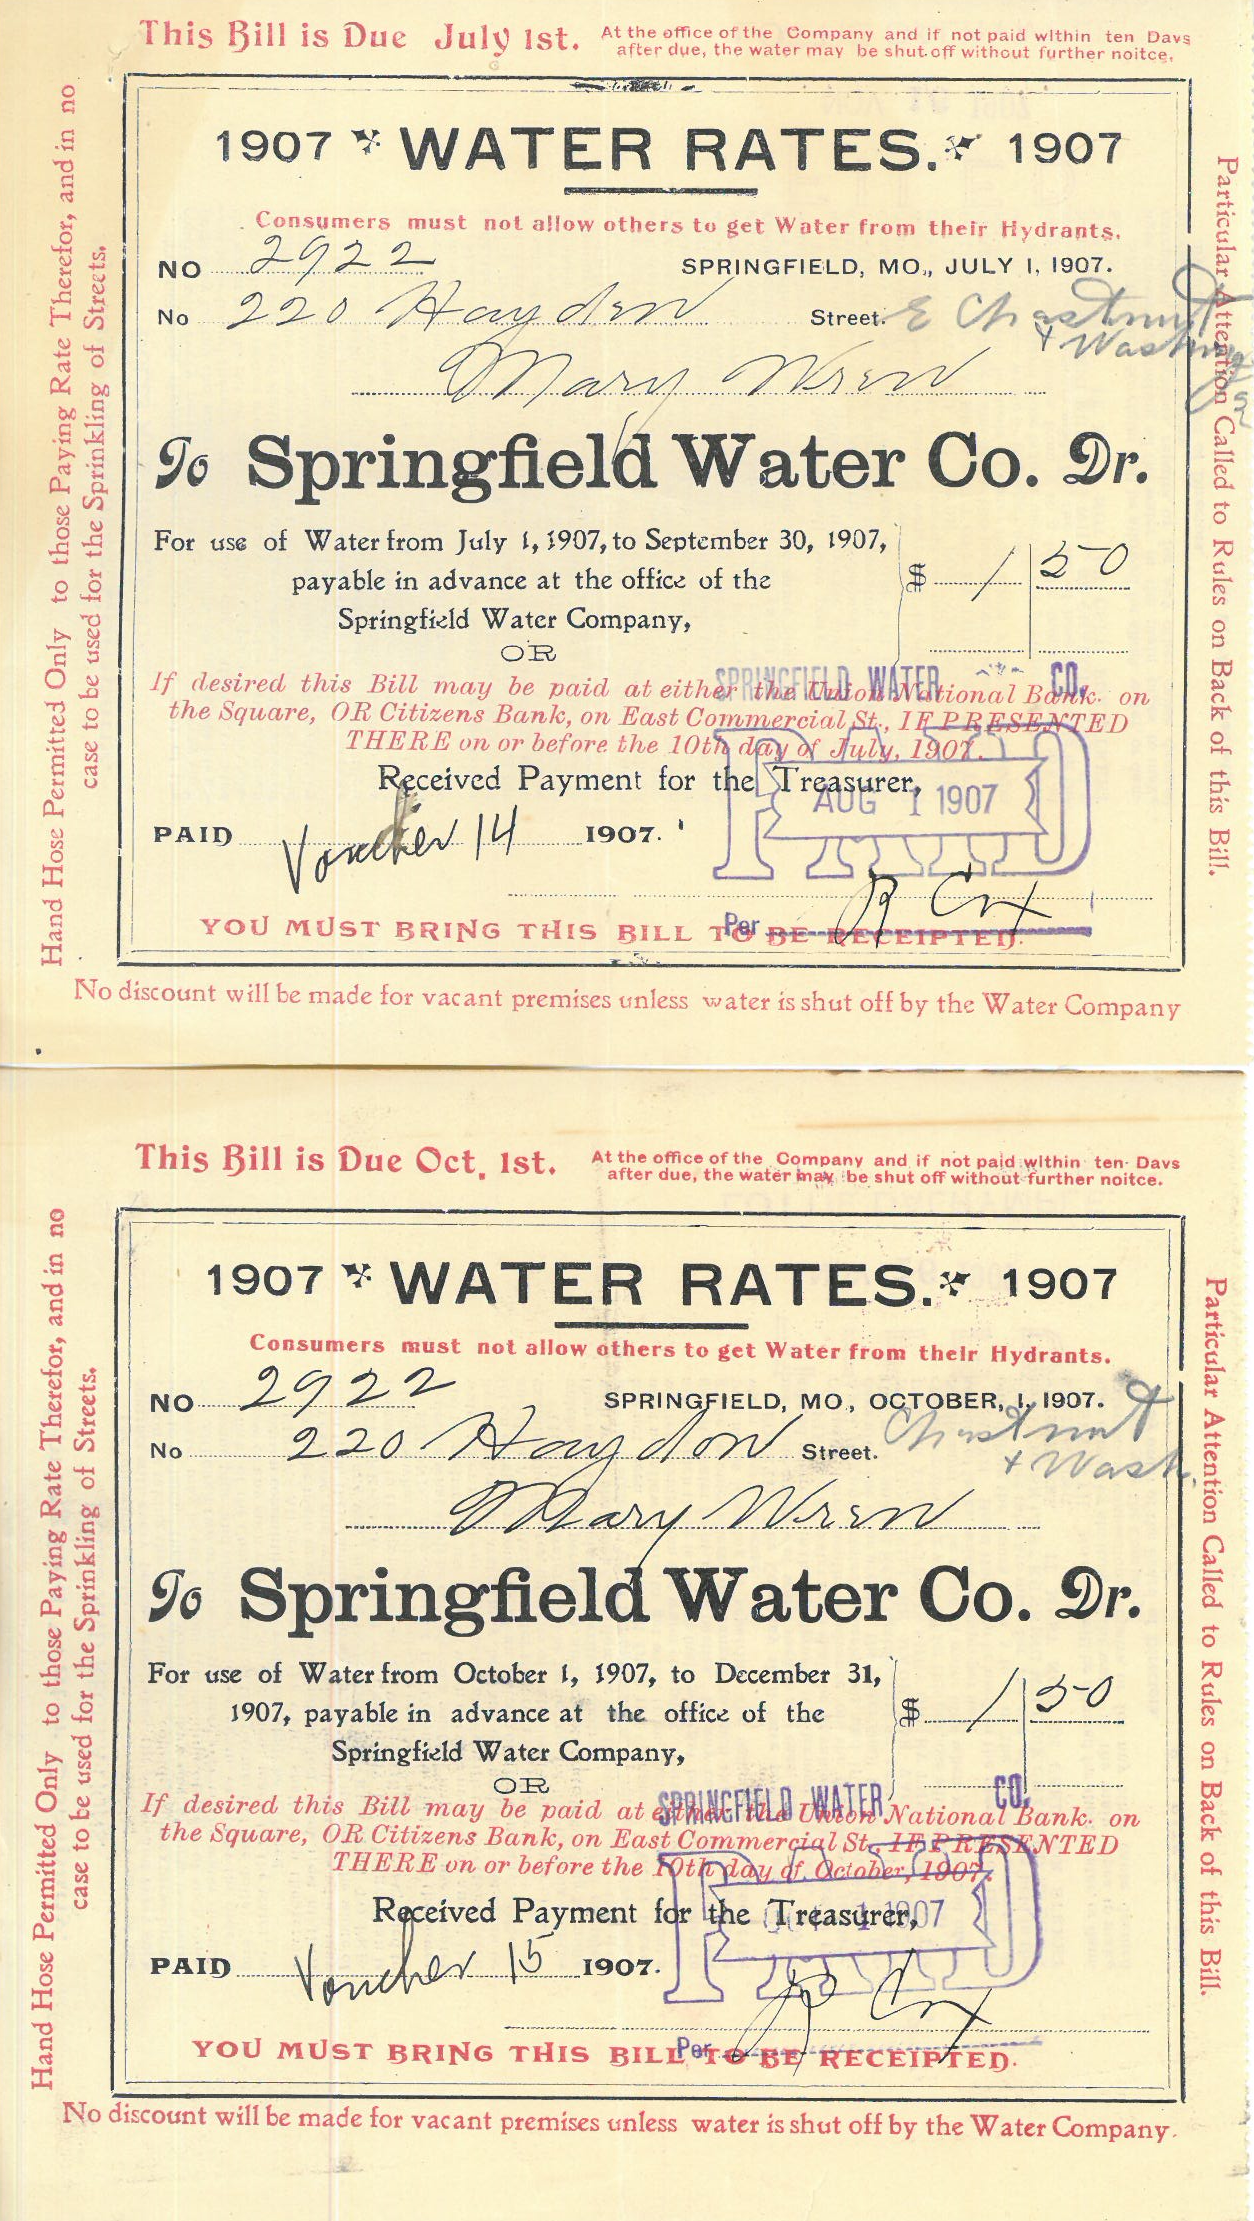 This Bill is Due July 1st. At the office of the Company and if not paid within ten Davs
after due, the water may be shut off without further noitce.
Hand Hose Permitted Only to those Paying Rate Therefor, and in no
case to be used for the Sprinkling of Streets.
1907 WATER RATES. 1907
Consumers must not allow others to get Water from their Hydrants.
NO 2922 SPRINGFIELD, MO., JULY 1, 1907.
No 220 Hayden Street. E Chastnut
+ Wash
Mary Wren
To Springfield Water Co. Dr.
For use of Water from July 1, 1907, to September 30, 1907,
payable in advance at the office of the $ 1 50
Springfield Water Company,
OR
SPRINGFIELD WATER CO.
If desired this Bill may be paid at either the Union National Bank. on
the Square, OR Citizens Bank, on East Commercial St., IF PRESENTED
THERE on or before the 10th day of July, 1907.
Received Payment for the Treasurer,
PAID
AUG 1 1907
PAID Voucher 14 1907.
Per R Cox
YOU MUST BRING THIS BILL TO BE RECEIPTED.
Particular Attention Called to Rules on Back of this Bill.
No discount will be made for vacant premises unless water is shut off by the Water Company
This Bill is Due Oct. 1st. At the office of the Company and if not paid within ten Davs
after due, the water may be shut off without further noitce.
Hand Hose Permitted Only to those Paying Rate Therefor, and in no
case to be used for the Sprinkling of Streets.
1907 WATER RATES. 1907
Consumers must not allow others to get Water from their Hydrants.
NO 2922 SPRINGFIELD, MO., OCTOBER, 1, 1907.
No 220 Haydon Street. Chastnut
+ Wash.
Mary Wren
To Springfield Water Co. Dr.
For use of Water from October 1, 1907, to December 31,
1907, payable in advance at the office of the $ 1 50
Springfield Water Company,
OR
SPRINGFIELD WATER CO.
If desired this Bill may be paid at either the Union National Bank. on
the Square, OR Citizens Bank, on East Commercial St., IF PRESENTED
THERE on or before the 10th day of October, 1907.
Received Payment for the Treasurer,
PAID
1 1907
PAID Voucher 15 1907.
Per R Cox
YOU MUST BRING THIS BILL TO BE RECEIPTED.
Particular Attention Called to Rules on Back of this Bill.
No discount will be made for vacant premises unless water is shut off by the Water Company.